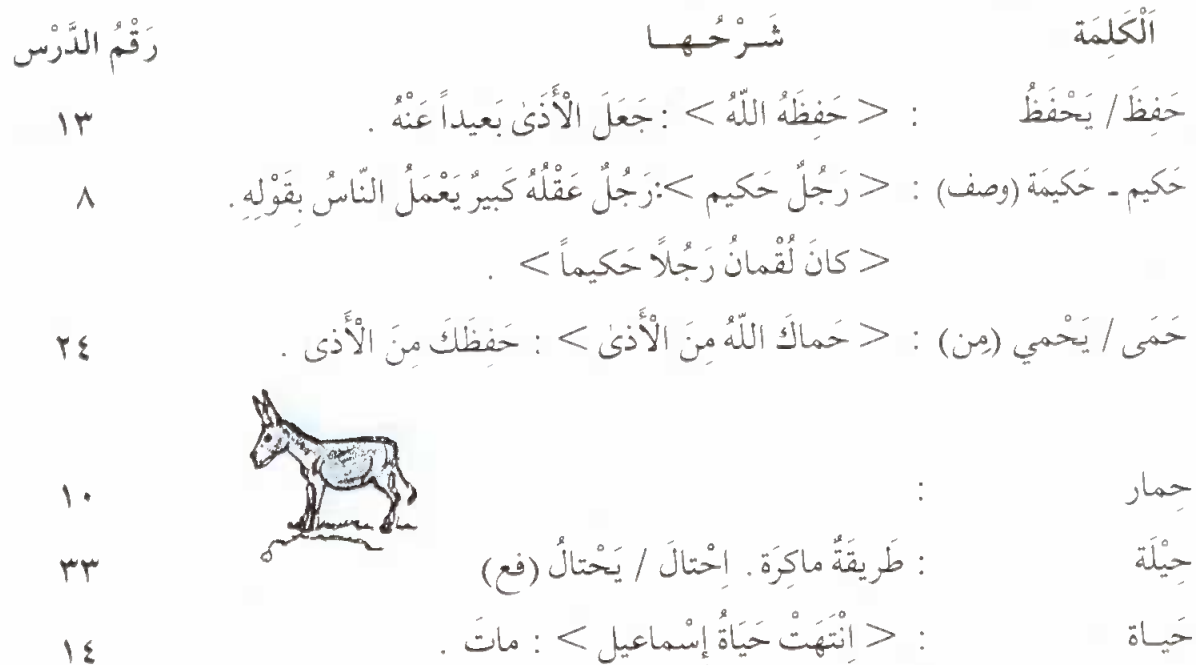 اَلْكَلِمَة شَـرْحُـهـا رَقْمُ الدَّرْس
حَفِظَ / يَحْفَظُ : < حَفِظَهُ اللّهُ > : جَعَلَ الْأَذَىٰ بَعيداً عَنْهُ . ١٣
حَكيم ـ حَكيمَة (وصف) : < رَجُلٌ حَكيم >:رَجُلٌ عَقْلُهُ كَبيرٌ يَعْمَلُ النّاسُ بِقَوْلِهِ . ٨
< كانَ لُقْمانُ رَجُلًا حَكيماً > .
حَمَى / يَحْمي (مِن) : < حَماكَ اللّهُ مِنَ الْأَذىٰ > : حَفِظَكَ مِنَ الْأَذى . ٢٤
حِمار : ١٠
حِيْلَة : طَريقَةٌ ماكِرَة . اِحْتالَ / يَحْتالُ (فع) ٣٣
حَيـاة : < اِنْتَهَتْ حَيَاةُ إسْماعيل > : ماتَ . ١٤